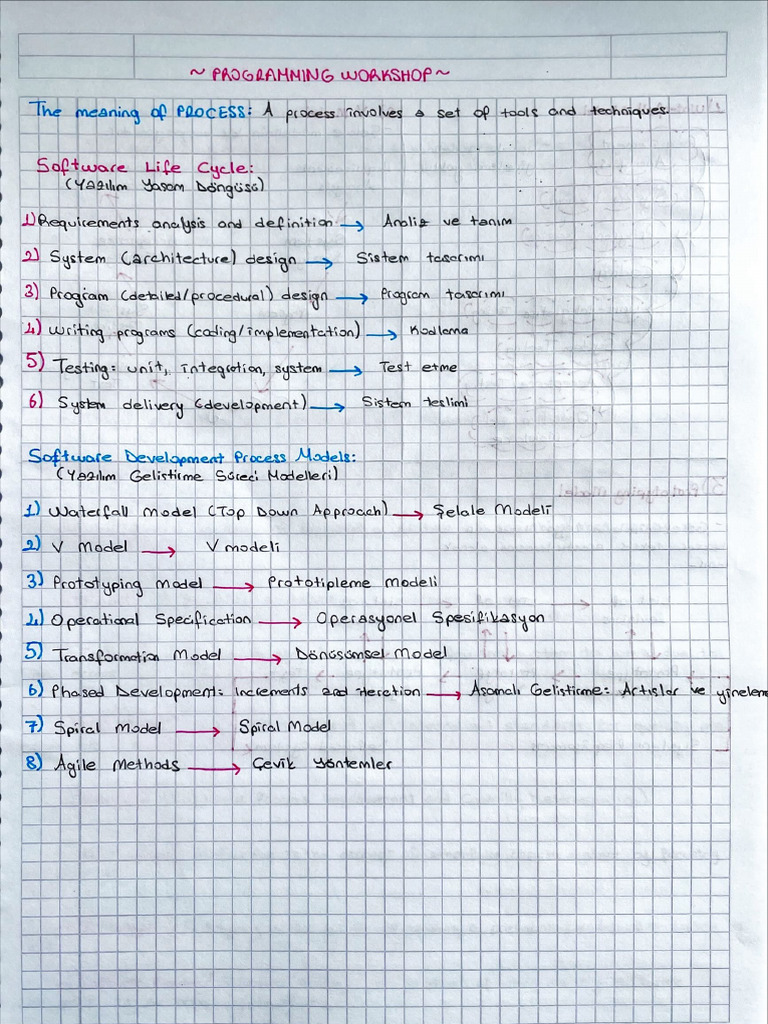 ~ PROGRAMMING WORKSHOP ~
The meaning of PROCESS: A process involves a set of tools and techniques.
Software Life Cycle:
(Yazılım Yasam Döngüsü)
1) Requirements analysis and definition → Analiz ve tanım
2) System (architecture) design → Sistem tasarımı
3) Program (detailed/procedural) design → Program tasarımı
4) Writing programs (coding/implementation) → Kodlama
5) Testing: unit, integration, system → Test etme
6) System delivery (development) → Sistem teslimi
Software Development Process Models:
(Yazılım Gelistirme Süreci Modelleri)
1) Waterfall Model (Top Down Approach) → Şelale Modeli
2) V Model → V modeli
3) Prototyping Model → Prototipleme modeli
4) Operational Specification → Operasyonel Spesifikasyon
5) Transformation Model → Dönüsümsel Model
6) Phased Development: Increments and iteration → Asamalı Gelistirme: Artışlar ve yinelem
7) Spiral Model → Spiral Model
8) Agile Methods → Çevik Yöntemler